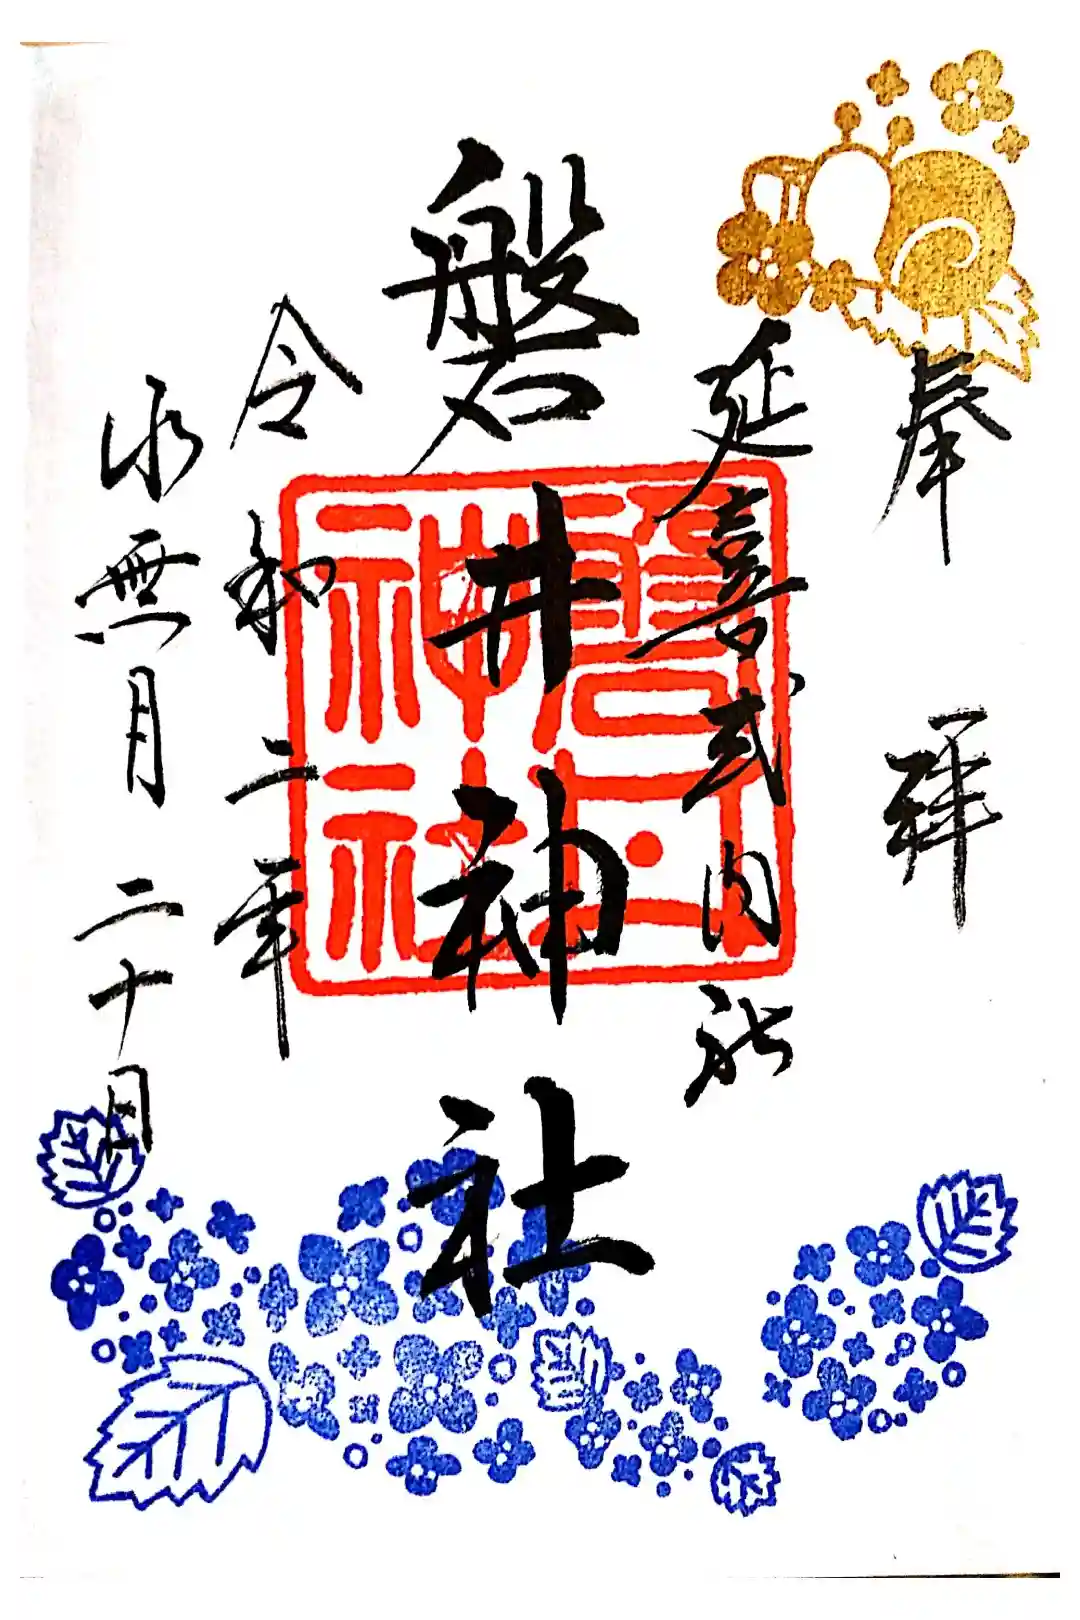 奉拝
延喜式内社
磐井神社
令和二年
水無月二十日
磐井神社